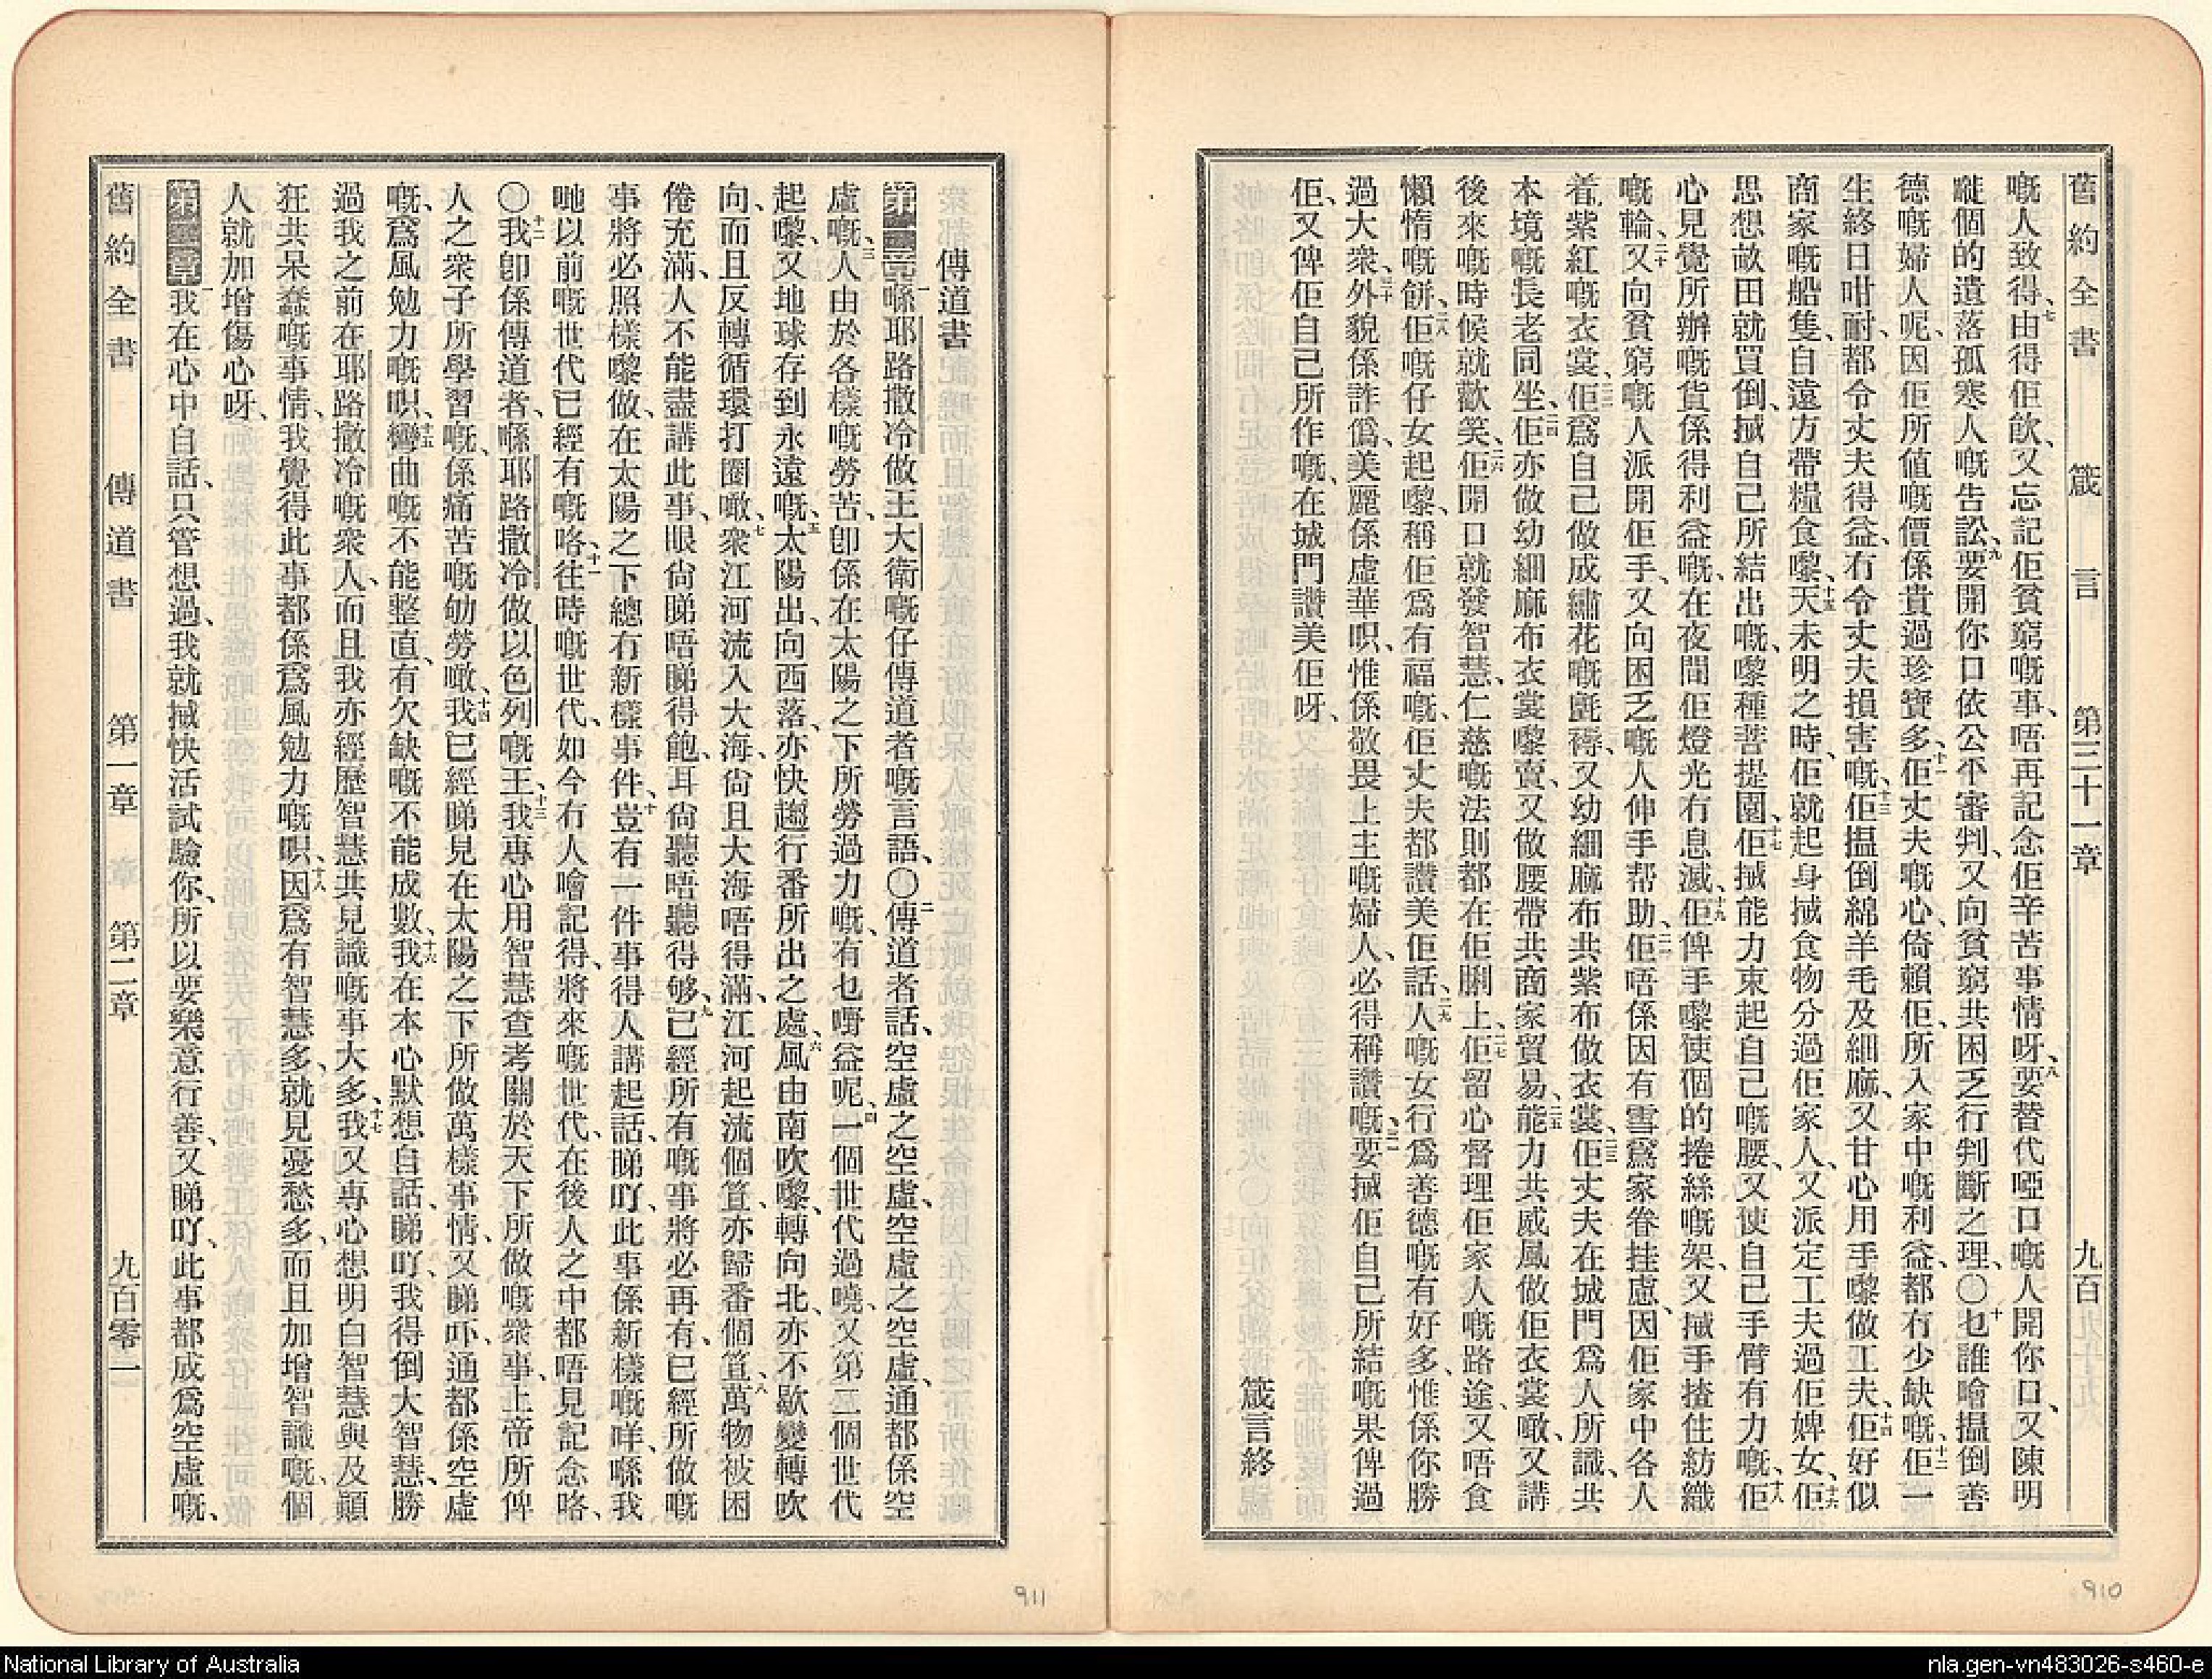 舊約全書　箴言　第三十一章　九百
嘅人致得、七由得佢飲、又忘記佢貧窮嘅事、唔再記念佢辛苦事情呀、八要替代啞口嘅人開你口、又陳明
嗰個的遺落孤寒人嘅告訟、九要開你口依公平審判、又向貧窮共困乏行判斷之理、〇十乜誰噲搵倒善
德嘅婦人呢、因佢所值嘅價係貴過珍寶多、十一佢丈夫嘅心、倚賴佢、所入家中嘅利益、都冇少缺嘅、十二佢一
生終日咁耐、都令丈夫得益、冇令丈夫損害嘅、十三佢搵倒綿羊毛及細麻、又甘心用手嚟做工夫、十四佢好似
商家嘅船隻、自遠方帶糧食嚟、十五天未明之時、佢就起身搣食物分過佢家人、又派定工夫過佢婢女、十六佢
思想畝田就買倒、搣自己所結出嘅、嚟種菩提園、十七佢搣能力束起自己嘅腰、又使自己手臂有力嘅、十八佢
心見覺所辦嘅貨係得利益嘅、在夜間佢燈光冇息滅、十九佢俾手嚟使個的捲絲嘅架、又搣手揸住紡織
嘅輪、二十又向貧窮嘅人派開佢手、又向困乏嘅人伸手帮助、二一佢唔係因有雪爲家眷挂慮、因佢家中各人
着紫紅嘅衣裳、二二佢爲自己做成繡花嘅氈褥、又幼細麻布共紫布做衣裳、二三佢丈夫在城門爲人所識、共
本境嘅長老同坐、二四佢亦做幼細麻布衣裳嚟賣、又做腰帶共商家貿易、二五能力共威風做佢衣裳噉、又講
後來嘅時候就歡笑、二六佢開口就發智慧、仁慈嘅法則都在佢脷上、二七佢留心督理佢家人嘅路途、又唔食
懶惰嘅餅、二八佢嘅仔女起嚟、稱佢爲有福嘅、佢丈夫都讚美佢話、二九人嘅女行爲善德嘅有好多、惟係你勝
過大衆、三十外貌係詐僞、美麗係虛華呮、惟係敬畏上主嘅婦人、必得稱讚嘅、三一要搣佢自己所結嘅果俾過
佢、又俾佢自己所作嘅、在城門讚美佢呀、
箴言終
910
傳道書
第一章 一喺耶路撒冷做王大衛嘅仔傳道者嘅言語、〇二傳道者話、空虛之空虛、空虛之空虛、通都係空
虛嘅、三人由於各樣嘅勞苦、卽係在太陽之下所勞過力嘅、有乜嘢益呢、四一個世代過嘵、又第二個世代
起嚟、又地球存到永遠嘅、五太陽出、向西落、亦快趨行番所出之處、六風由南吹嚟、轉向北、亦不歇變轉吹
向、而且反轉循環打圈噉、七衆江河流入大海、尙且大海唔得滿、江河起流個笪、亦歸番個笪、八萬物被困
倦充滿、人不能盡講此事、眼尙睇唔睇得飽、耳尙聽唔聽得够、九已經所有嘅事將必再有、已經所做嘅
事將必照樣嚟做、在太陽之下總冇新樣事件、十豈有一件事得人講起話、睇吖、此事係新樣嘅咩、喺我
哋以前嘅世代已經有嘅咯、十一往時嘅世代、如今冇人噲記得、將來嘅世代、在後人之中都唔見記念咯、
〇十二我卽係傳道者、喺耶路撒冷做以色列嘅王、十三我專心用智慧查考關於天下所做嘅衆事、上帝所俾
人之衆子所學習嘅、係痛苦嘅劬勞噉、十四我已經睇見在太陽之下所做萬樣事情、又睇吓、通都係空虛
嘅、爲風勉力嘅呮、十五彎曲嘅不能整直、有欠缺嘅不能成數、十六我在本心默想自話、睇吖、我得倒大智慧、勝
過我之前在耶路撒冷嘅衆人、而且我亦經歷智慧共見識嘅事大多、十七我又專心想明白智慧與及顚
狂共呆蠢嘅事情、我覺得此事都係爲風勉力嘅呮、十八因爲有智慧多、就見憂愁多、而且加增智識嘅、個
人就加增傷心呀、
第二章 一我在心中自話、只管想過、我就搣快活試驗你、所以要樂意行善、又睇吖、此事都成爲空虛嘅、
舊約全書　傳道書　第一章　第二章　九百零一
911
National Library of Australia
nla.gen-vn483026-s460-e